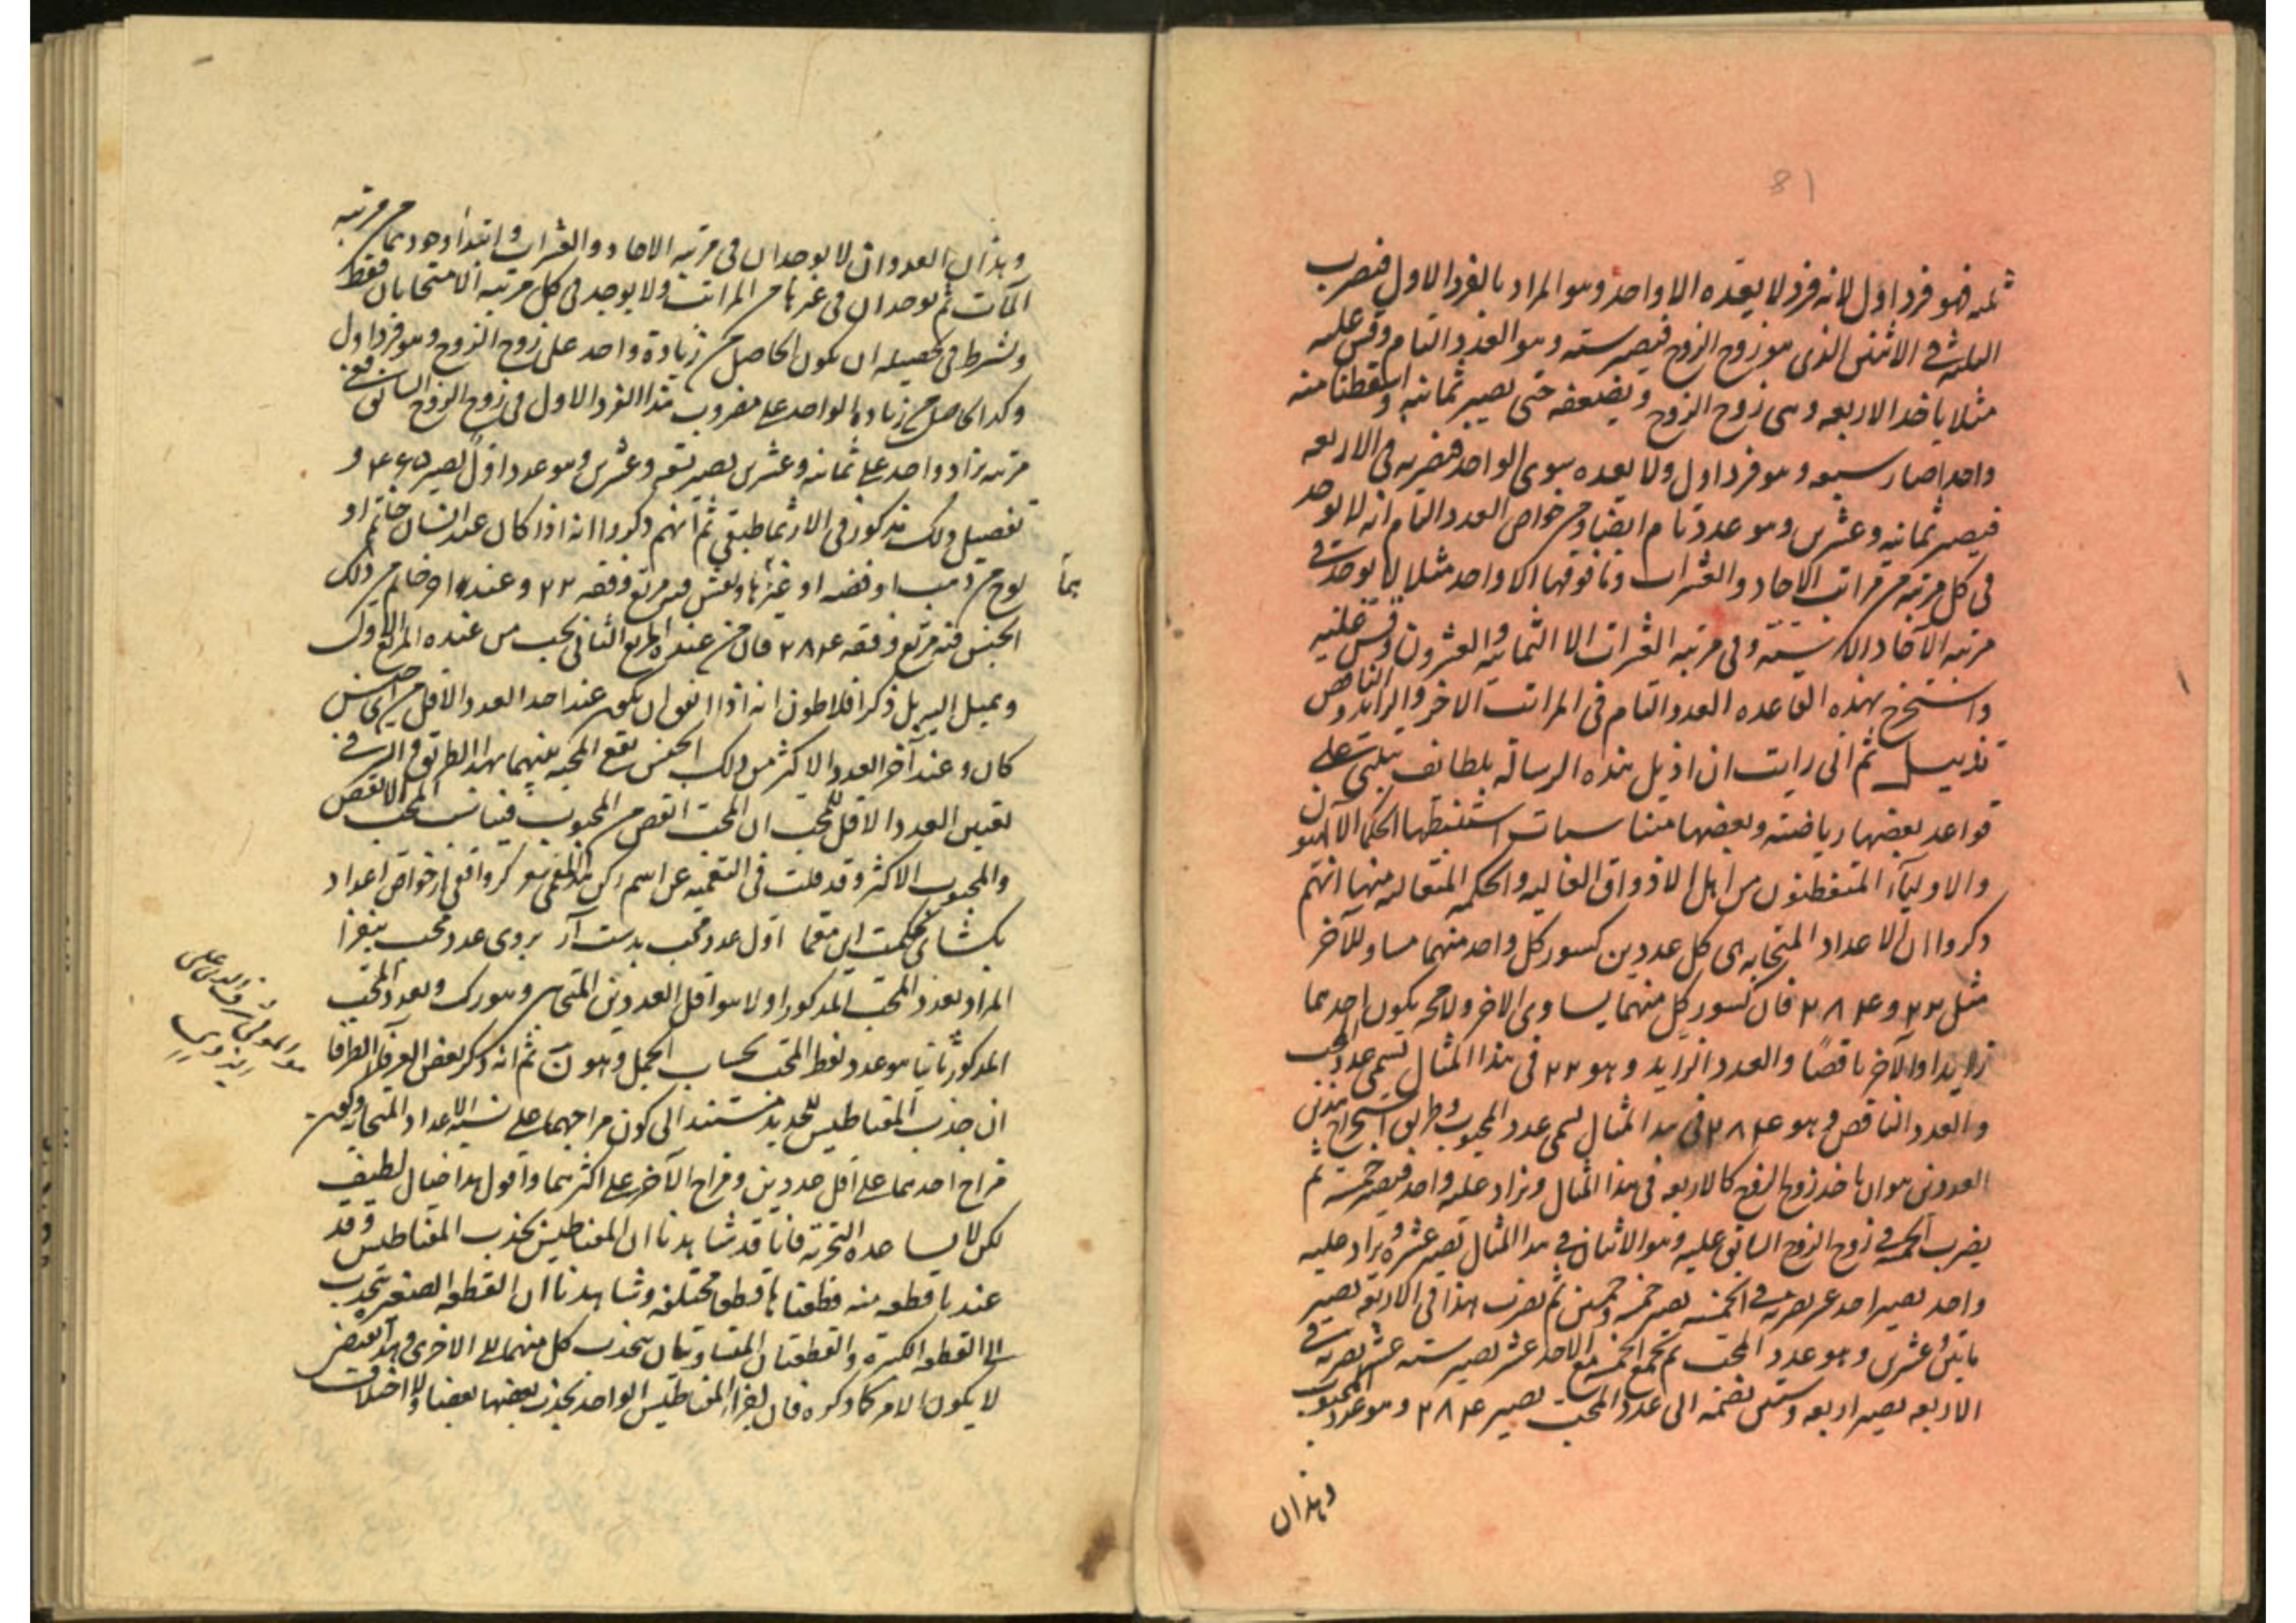 81
ثلثه فهو فرد اول لانه فرد لا يعده الا واحد وهو المراد بالفرد الاول فنضرب
الثلثة في الاثنين الذى هو زوج الزوج فيصير سته وهو العدد التام وقس عليه
مثلا ياخذ الاربعه وهى زوج الزوج ويضعفه حتى يصير ثمانيه واسقطنا منه
واحدا صار سبعه وهو فرد اول ولا يعده سوى الواحد فنضربه في الاربعه
فيصير ثمانيه وعشرين وهو عدد تام ايضا ومن خواص العدد التام انه لا يوجد
في كل مرتبة من مراتب الاحاد والعشرات وما فوقها الا واحد مثلا لا يوجد في
مرتبه الآحاد الا سته وفي مرتبه العشرات الا الثمانيه والعشرون وقس عليه
واستخرج بهذه القاعده العدد التام في المراتب الاخر والزايد والناقص
تذييل ثم انى رايت ان اذيل هذه الرساله بلطايف تبتنى على
قواعد بعضها رياضيه وبعضها مناسبات استنبطها الحكما الالهيون
والاوليآء المتفطنون من اهل الاذواق العاليه والحكمه المتعاليه منها انهم
ذكروا ان الاعداد المتحابه هى كل عددين كسور كل واحد منهما مساو للآخر
مثل ٢٢٠ و ٢٨٤ فان كسور كل منهما يساوى الاخر ولا محه يكون احدهما
زايدا والآخر ناقصًا والعدد الزايد وهو ٢٢٠ في هذا المثال يسمى عدد المحب
والعدد الناقص وهو ٢٨٤ في هذا المثال يسمى عدد المحبوب وطريق استخراج هذين
العددين هو ان ياخذ زوج الزوج كالاربعه في هذا المثال ويزاد عليه واحد فيصير خمسة ثم
يضرب الخمسه في زوج الزوج السابق عليه وهو الاثنان في هذا المثال يصير عشره ويزاد عليه
واحد يصير احد عشر نضربه في الخمسه يصير خمسه وخمسين ثم نضرب هذا في الاربعه يصير
مايتين وعشرين وهو عدد المحب ثم نجمع الخمسه مع الاحد عشر يصير سته عشر نضربه في
الاربعه يصير اربعه وستين نضمه الى عدد المحب يصير ٢٨٤ وهو عدد المحبوب
وهذان
وهذان العددان لا يوجدان في مرتبه الاحاد والعشرات وابتدا وجودهما من مرتبه
المآت ثم يوجدان في غيرها من المراتب ولا يوجد في كل مرتبه الا متحابان فقط
ويشرط في تحصيله ان يكون الحاصل من زيادة واحد على زوج الزوج وهو فرد اول
وكذا الحاصل من زياده الواحد على مضروب هذا الفرد الاول في زوج الزوج السابق ففي
مرتبه يزاد واحد على ثمانيه وعشرين يصير تسعه وعشرين وهو عدد اول يصير و
تفصيل ذلك مذكور في الارثماطيقي ثم انهم ذكروا انه اذا كان عند انسان خاتم او
لوح من ذهب او فضه او غيرها ونقش فيه مربع وفقه ٢٢٠ وعند اخر خاتم من ذلك
هما
الجنس فيه مربع وفقه ٢٨٤ فان من عنده المربع الثاني يحب من عنده المربع الاول
ويميل اليه بل ذكر افلاطون انه اذا اتفق ان يكون عند احد العدد الاقل من اى جنس
كان وعند آخر العدد الاكثر من ذلك الجنس تقع المحبه بينهما بهذا الطريق والسر في
تعيين العدد الاقل للمحب ان المحب انقص من المحبوب فيناسب المحب الانقص
والمحبوب الاكثر وقد قلت في التعميه عن اسم ركن الدين كر واقفى از خواص اعداد
بكشاى بحكمت اين معما اول عدد محب بدست آر بروى عدد محب بيفزا
المراد بعدد المحب المذكور اولا هو اقل العددين المتحابين وهو رك وبعدد المحب
المذكور ثانيا هو عدد لفظ المحب بحساب الجمل وهو ن ثم انه ذكر بعض العرفآ الظرفا
ان جذب المقناطيس للحديد مستند الى كون مزاجهما على نسبه الاعداد المتحابه وكون
مزاج احدهما على اقل عددين ومزاج الآخر على اكثرهما واقول هذا خيال لطيف
لكن لا يساعده التجربه فانا قد شاهدنا ان المغناطيس يجذب المقناطيس وقد
عندنا قطعه منه فقطعناها قطعا مختلفه وشاهدنا ان القطعه الصغيره تنجذب
الى القطعه الكبيره والقطعتان المتساويتان ينجذب كل منهما الى الاخرى وهذا يقتضى
لا يكون الامر كما ذكره فان اجزاء المغناطيس الواحد يجذب بعضها بعضا ولا اختلاف